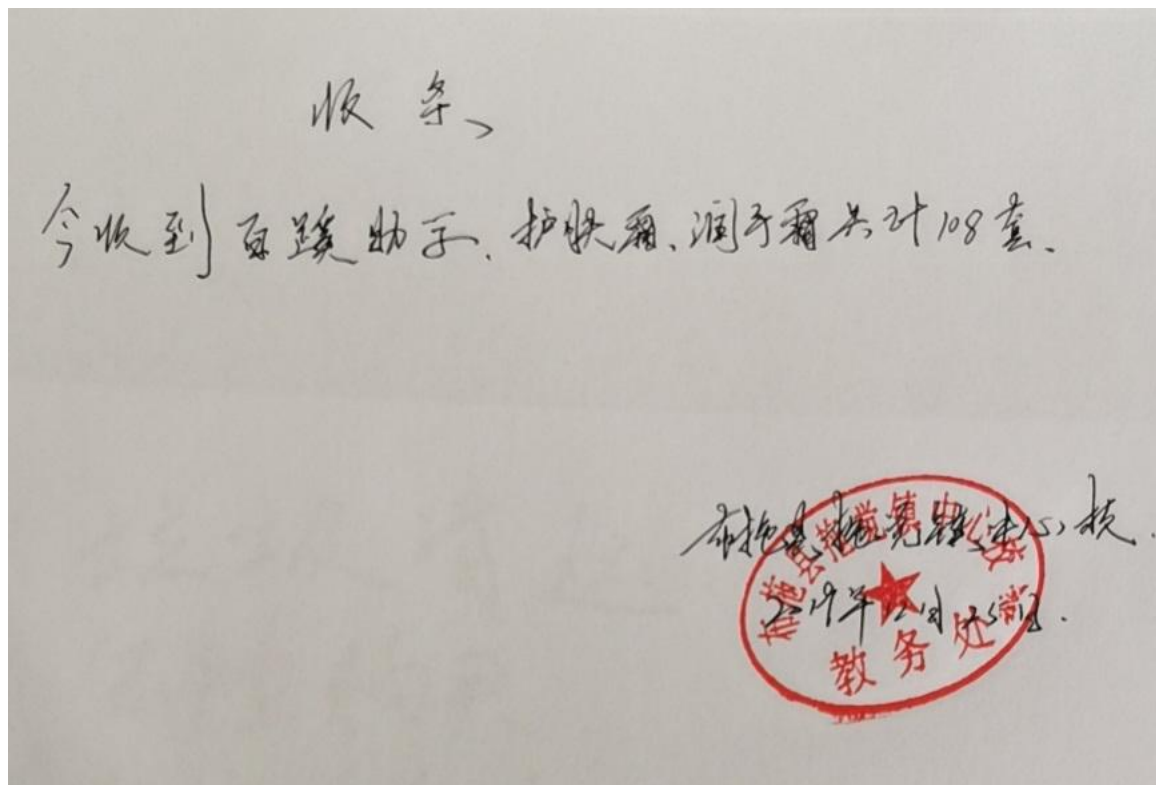 收条
今收到百蹊助学、护肤霜、润手霜共计108套、
布拖县拖觉镇中心校
2019年12月25日.
布拖县拖觉镇中心校
教务处